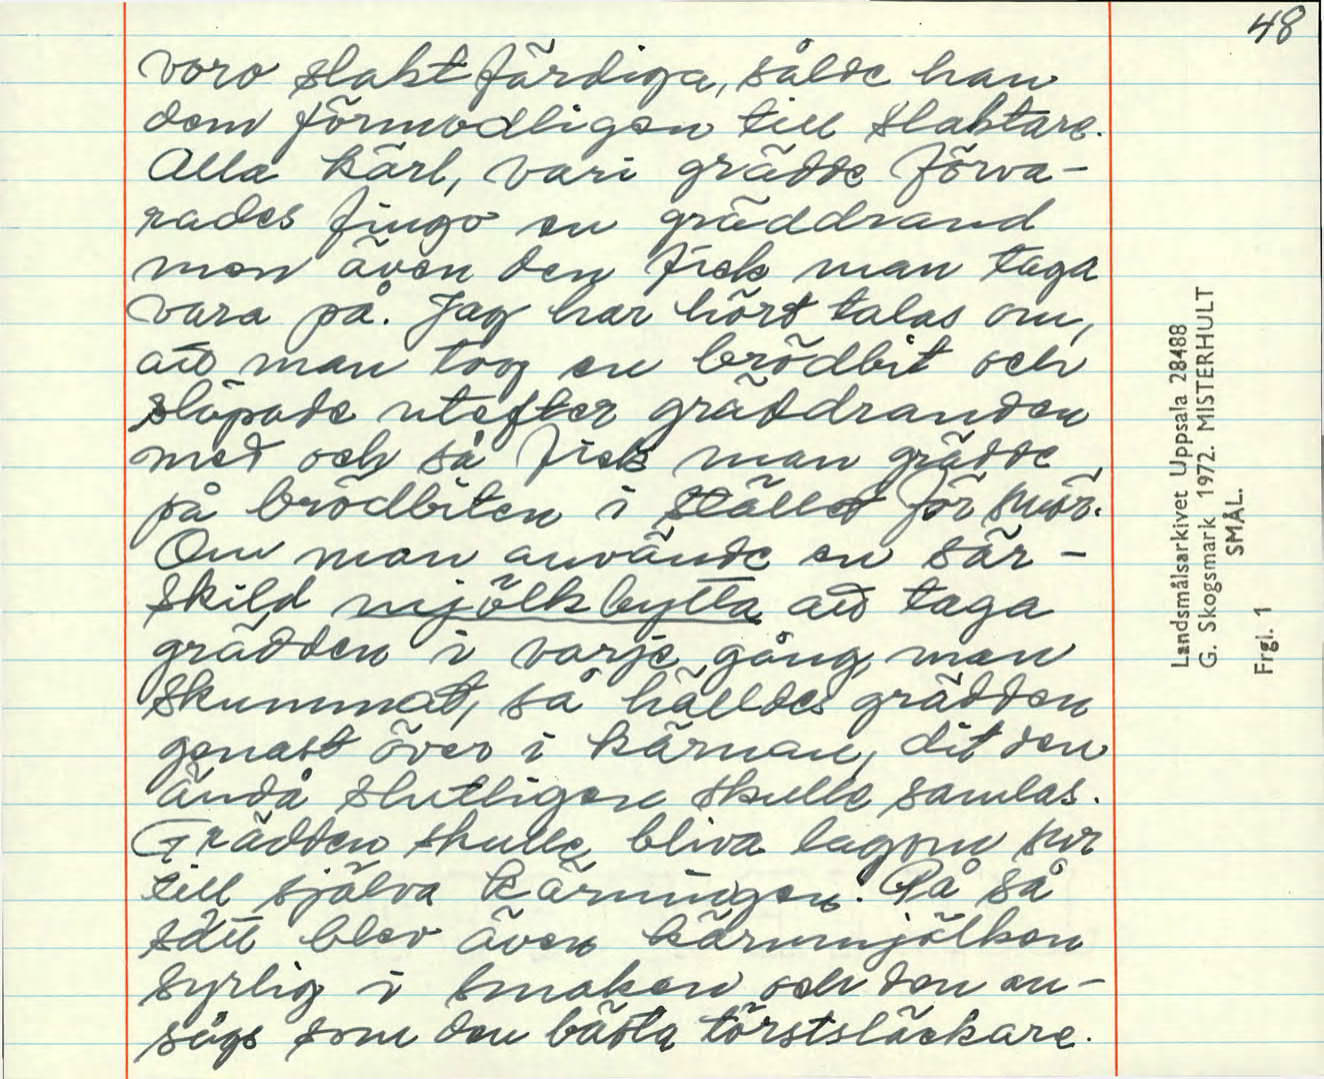 48
voro slaktfärdiga, sålde han
dem förmodligen till slaktare.
Alla kärl, vari grädde förva-
rades fingo en gräddrand
men även den fick man taga
vara på. Jag har hört talas om,
att man tog en brödbit och
släpade utefter gräddranden
med och så fick man grädde
på brödbiten i stället för smör.
Om man använde en sär-
skild mjölkbytta att taga
grädden i varje gång man
skummat, så hälldes grädden
genast över i kärnan, dit den
ändå slutligen skulle samlas.
Grädden skulle bliva lagom sur
till själva kärningen. På så
sätt blev även kärnmjölken
syrlig i smaken och den an-
sågs som den bästa törstsläckare.
Landsmålsarkivet Uppsala 28488
G. Skogsmark 1972. MISTERHULT
SMÅL.
Frgl. 1